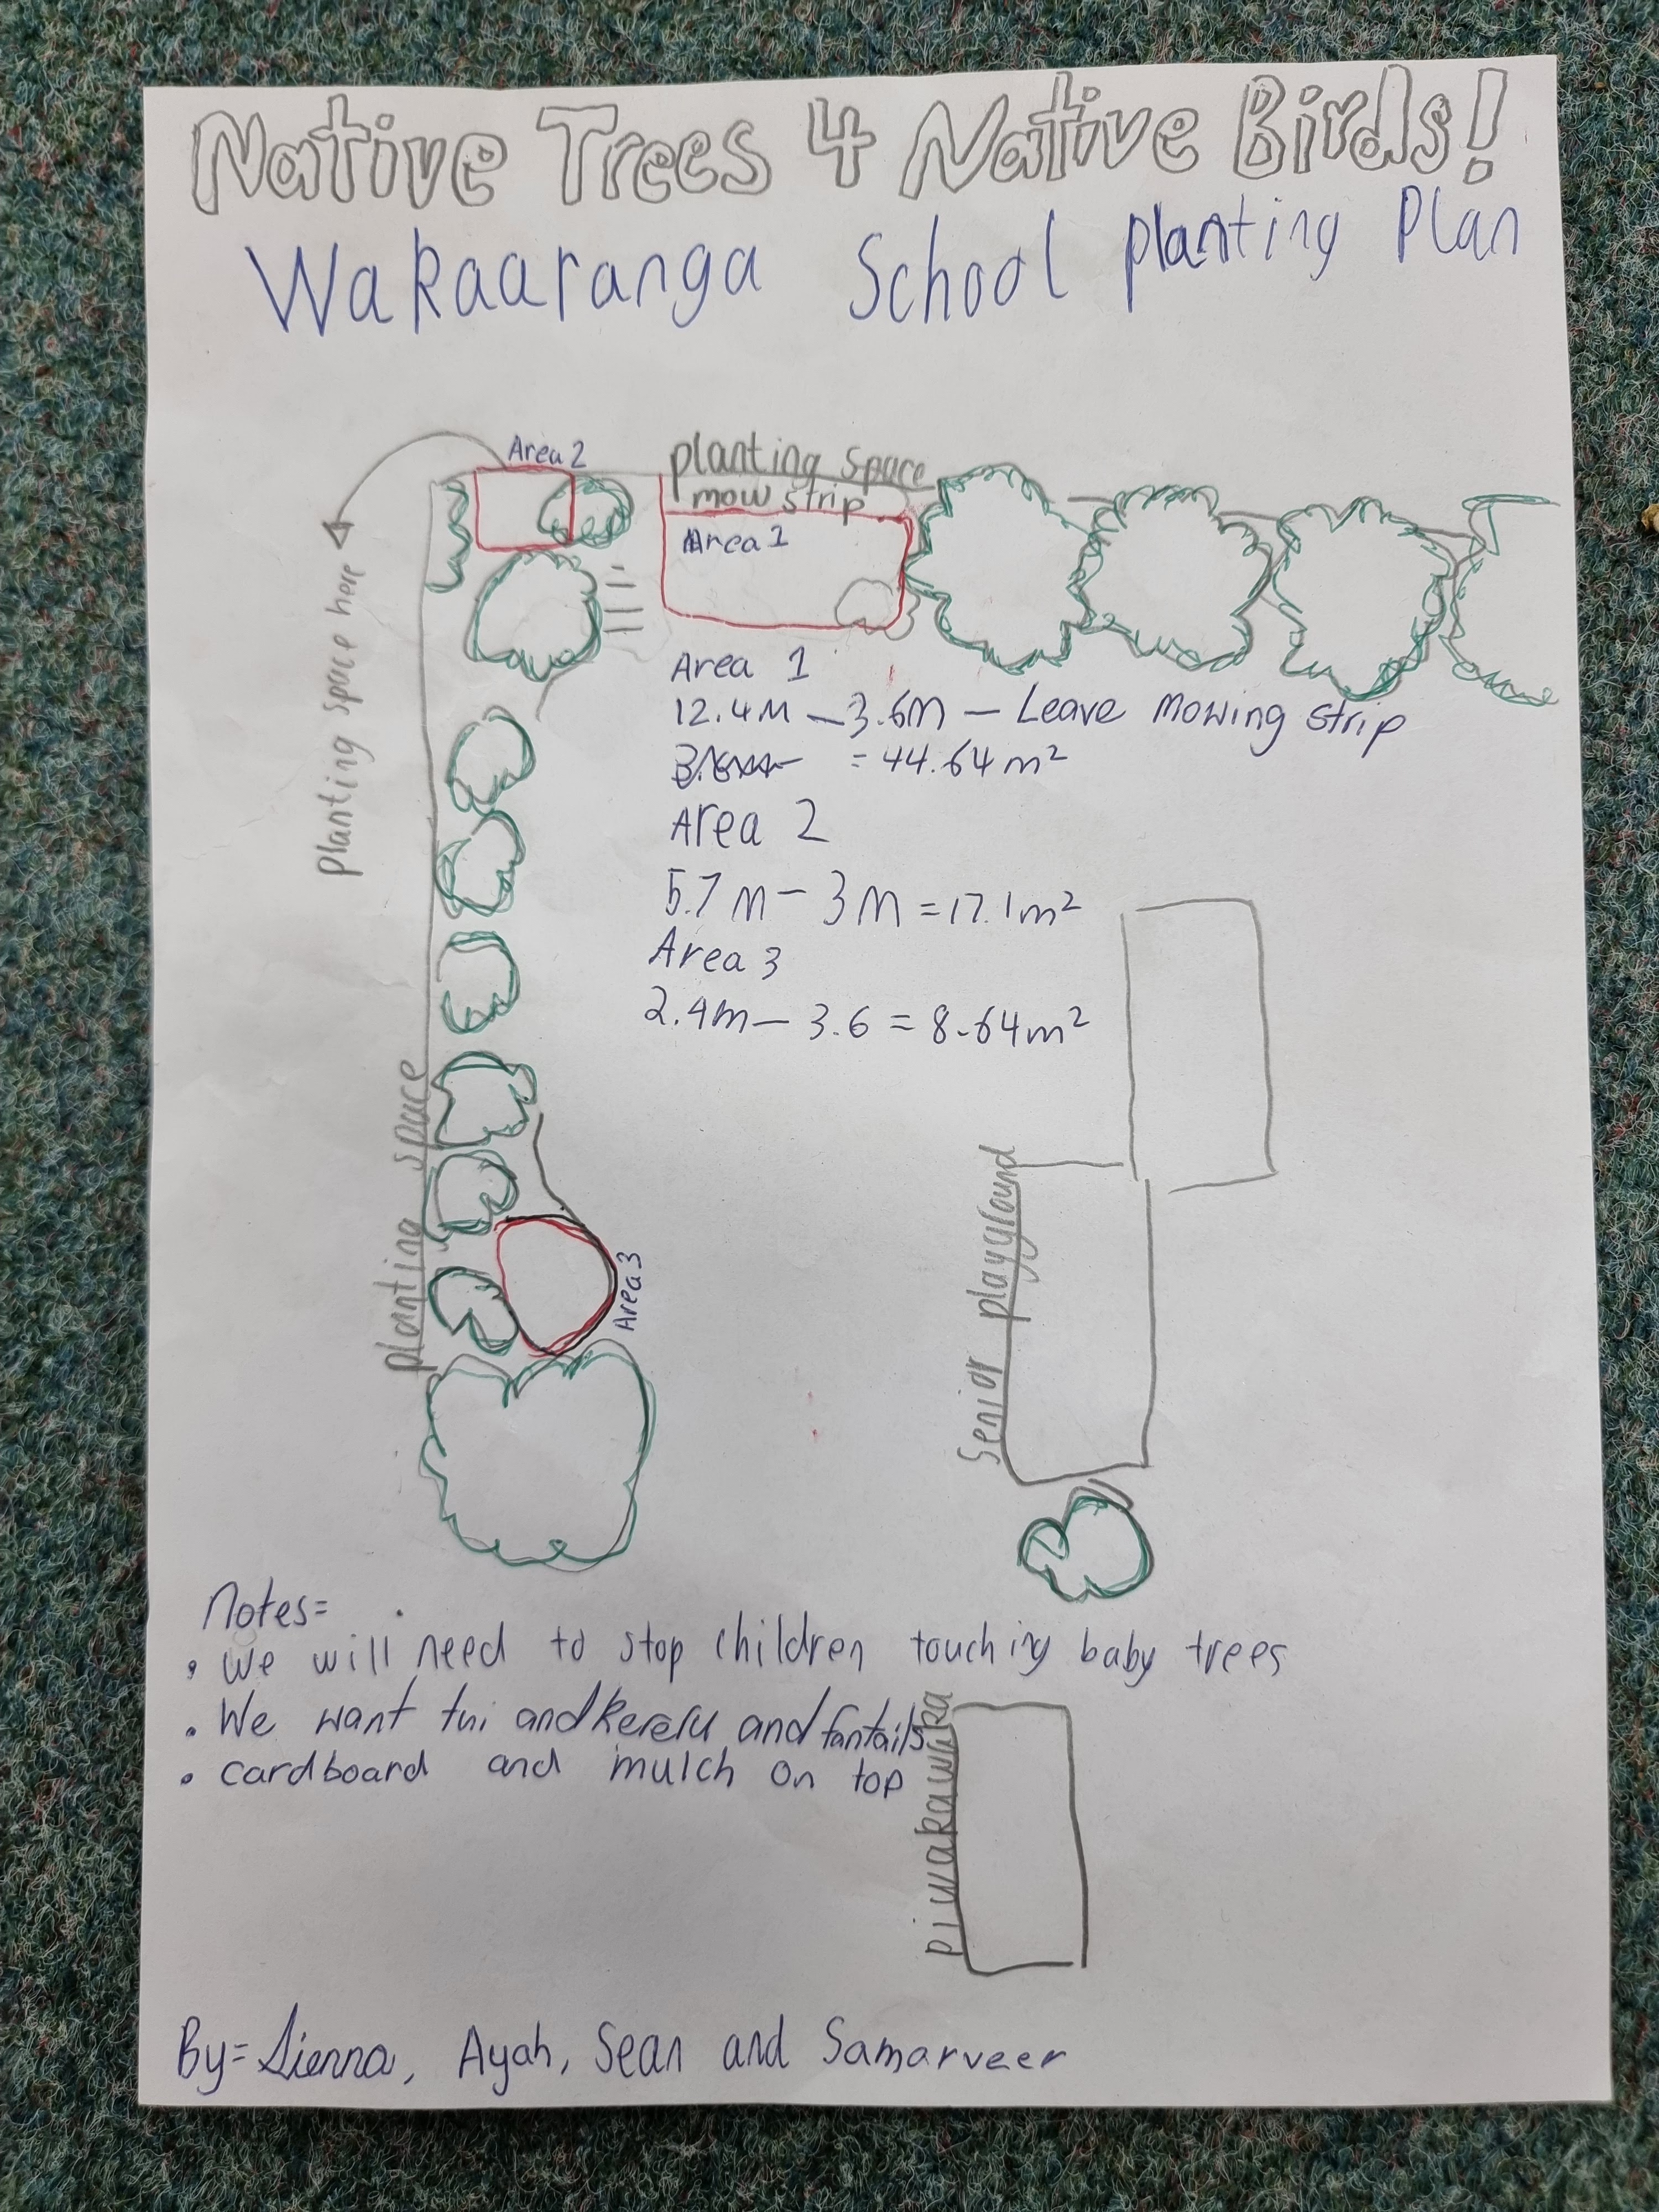 Native Trees 4 Native Birds!
Wakaaranga School planting Plan
Area 2
planting space
mow strip
Area 1
planting space here
Area 1
12.4M - 3.6M - Leave Mowing strip
= 44.64m²
Area 2
5.7M - 3M = 17.1m²
Area 3
2.4m - 3.6 = 8.64m²
planting space
Area 3
Senior playground
Notes=
• We will need to stop children touching baby trees
• We want tui and kereru and fantails
• cardboard and mulch on top
piwakawaka
By= Sienna, Ayah, Sean and Samarveer